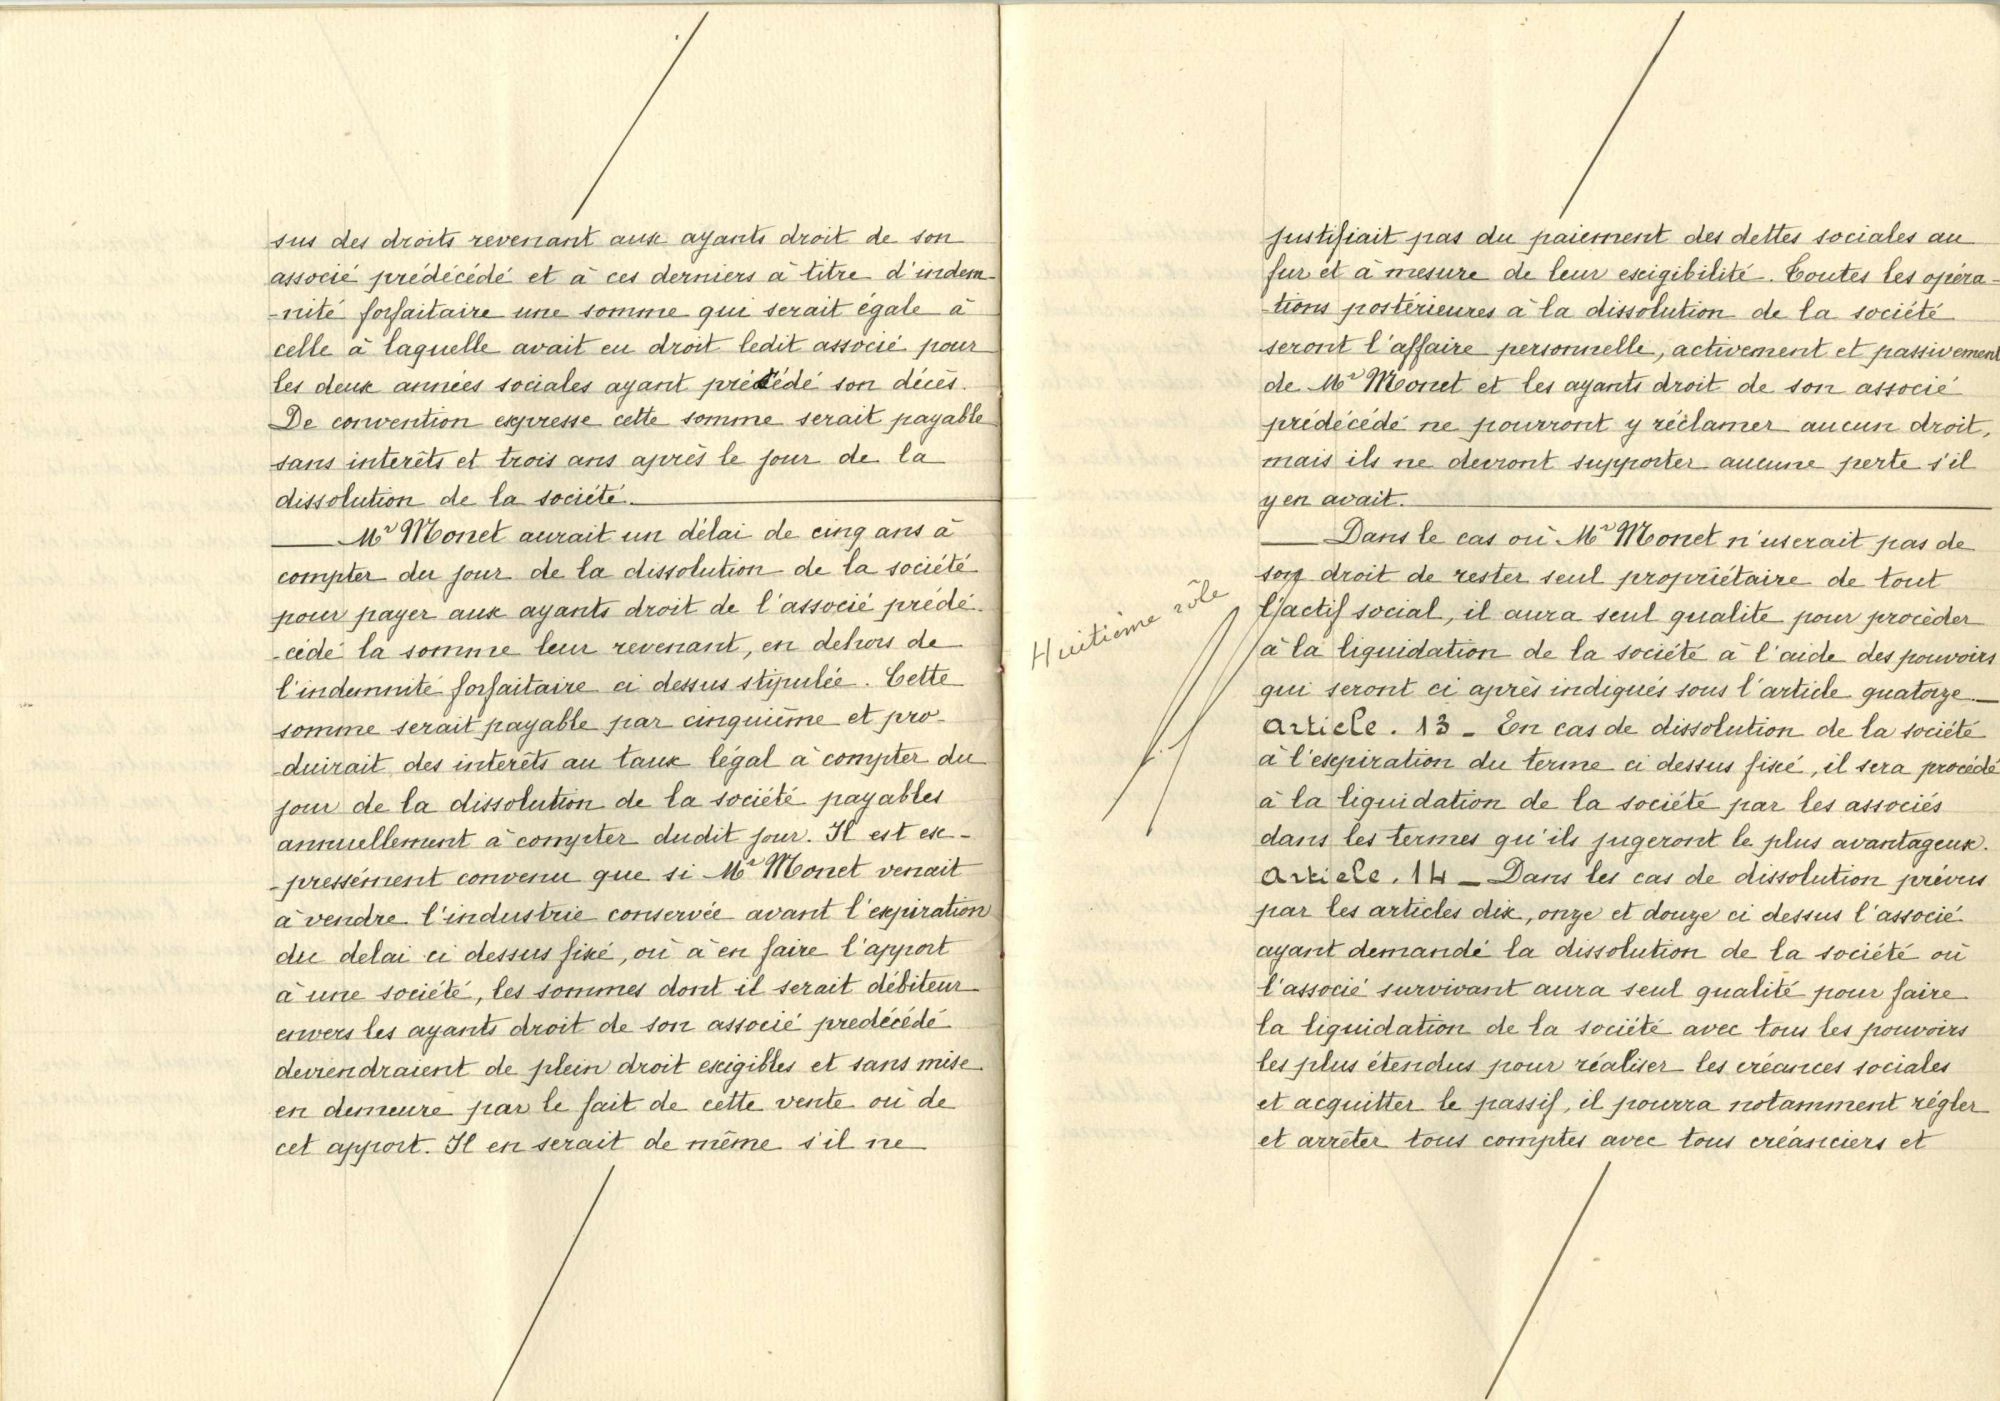 sus des droits revenant aux ayants droit de son
associé prédécédé et à ces derniers à titre d'indem-
-nité forfaitaire une somme qui serait égale à
celle à laquelle avait eu droit ledit associé pour
les deux années sociales ayant précédé son décès.
De convention expresse cette somme serait payable
sans interêts et trois ans après le jour de la
dissolution de la société.
Mr Monet aurait un délai de cinq ans à
compter du jour de la dissolution de la société
pour payer aux ayants droit de l'associé prédé-
-cédé la somme leur revenant, en dehors de
l'indemnité forfaitaire ci dessus stipulée. Cette
somme serait payable par cinquième et pro-
-duirait des interêts au taux légal à compter du
jour de la dissolution de la société payables
annuellement à compter dudit jour. Il est ex-
-pressément convenu que si Mr Monet venait
à vendre l'industrie conservée avant l'expiration
du delai ci dessus fixé, où à en faire l'apport
à une société, les sommes dont il serait débiteur
envers les ayants droit de son associé predécédé
deviendraient de plein droit exigibles et sans mise
en demeure par le fait de cette vente où de
cet apport. Il en serait de même s'il ne
justifiait pas du paiement des dettes sociales au
fur et à mesure de leur exigibilité. Toutes les opéra-
-tions postérieures à la dissolution de la société
seront l'affaire personnelle, activement et passivement
de Mr Monet et les ayants droit de son associé
prédécédé ne pourront y réclamer aucun droit,
mais ils ne devront supporter aucune perte s'il
y en avait.
Dans le cas où Mr Monet n'userait pas de
son droit de rester seul propriétaire de tout
l'actif social, il aura seul qualité pour procéder
à la liquidation de la société à l'aide des pouvoirs
qui seront ci après indiqués sous l'article quatorze.
Article. 13 - En cas de dissolution de la société
à l'expiration du terme ci dessus fixé, il sera procédé
à la liquidation de la société par les associés
dans les termes qu'ils jugeront le plus avantageux.
Article. 14 - Dans les cas de dissolution prévus
par les articles dix, onze et douze ci dessus l'associé
ayant demandé la dissolution de la société où
l'associé survivant aura seul qualité pour faire
la liquidation de la société avec tous les pouvoirs
les plus étendus pour réaliser les créances sociales
et acquitter le passif, il pourra notamment régler
et arrêter tous comptes avec tous créanciers et
Huitième rôle